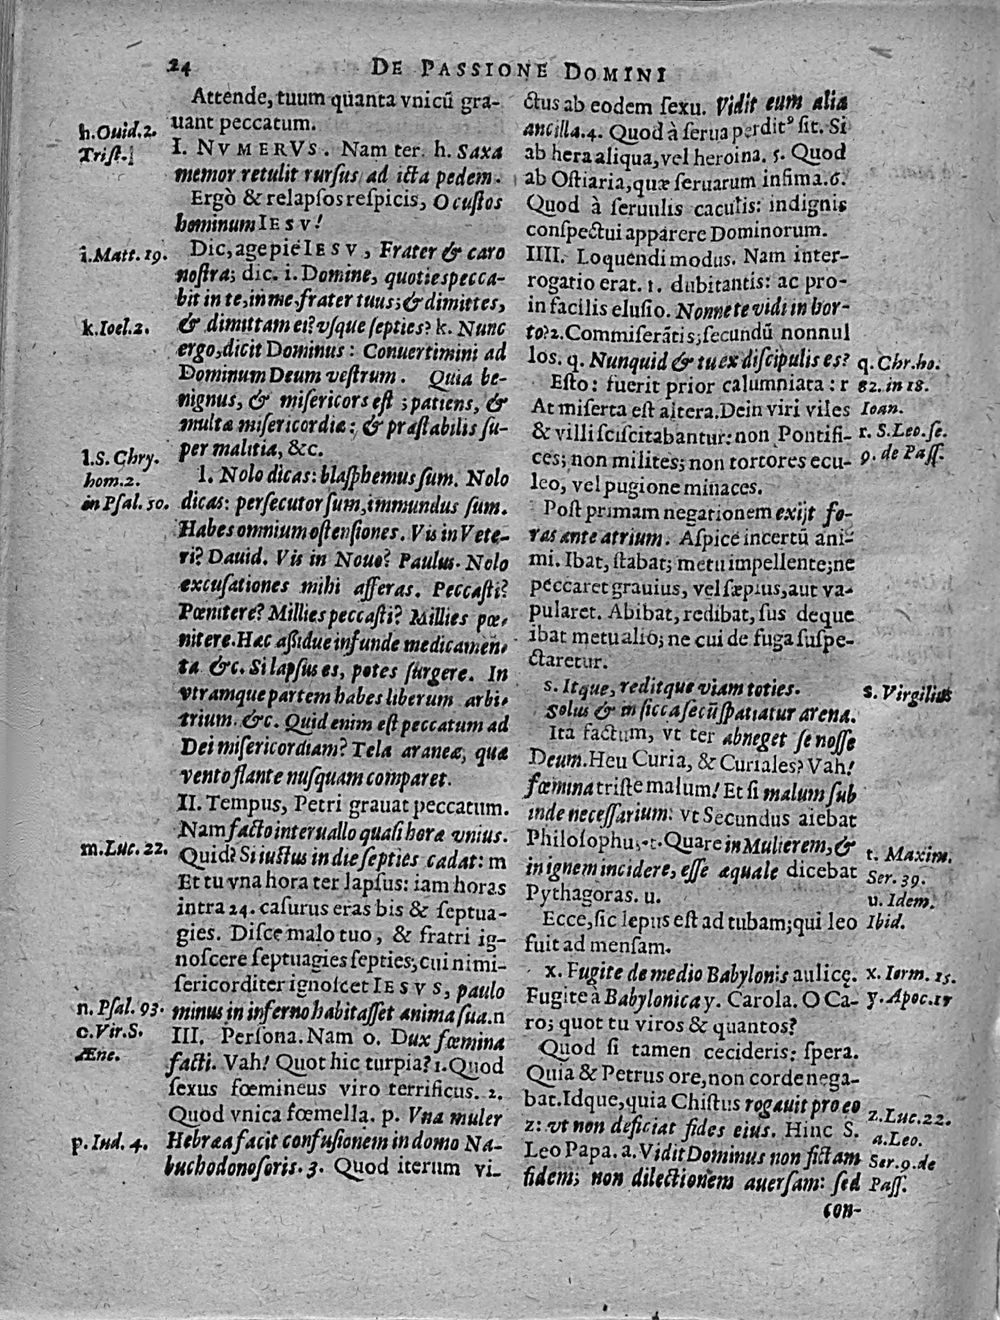 24
DE PASSIONE DOMINI
Attende, tuum quanta vnicũ gra-
uant peccatum.
I. NVMERVS. Nam ter. h. Saxa
memor retulit rursus ad icta pedem.
Ergò & relapsos respicis, O custos
hominum IESV!
Dic, age pie IESV, Frater & caro
nostra; dic. i. Domine, quoties pecca-
bit in te, in me, frater tuus; & dimittes,
& dimittam ei? vsque septies? k. Nunc
ergo, dicit Dominus: Conuertimini ad
Dominum Deum vestrum. Quia be-
nignus, & misericors est; patiens, &
multæ misericordiæ; & præstabilis su-
per malitia, &c.
l. Nolo dicas: blasphemus sum. Nolo
dicas: persecutor sum, immundus sum.
Habes omnium ostensiones. Vis in Vete-
ri? Dauid. Vis in Nouo? Paulus. Nolo
excusationes mihi afferas. Peccasti?
Pœnitere? Millies peccasti? Millies pœ-
nitere. Hac assidue infunde medicamen-
ta &c. Si lapsus es, potes surgere. In
vtramque partem habes liberum arbi-
trium. &c. Quid enim est peccatum ad
Dei misericordiam? Tela araneæ, quæ
vento flante nusquam comparet.
II. Tempus, Petri grauat peccatum.
Nam facto interuallo quasi horæ vnius.
Quid? Si iustus in die septies cadat: m
Et tu vna hora ter lapsus: iam horas
intra 24. casurus eras bis & septua-
gies. Disce malo tuo, & fratri ig-
noscere septuagies septies; cui nimi-
sericorditer ignoscet IESVS, paulo
minus in inferno habitasset anima sua. n
III. Persona. Nam o. Dux fœmina
facti. Vah! Quot hic turpia? 1. Quod
sexus fœmineus viro terrificus. 2.
Quod vnica fœmella. p. Vna muler
Hebræa facit confusionem in domo Na-
buchodonosoris. 3. Quod iterum vi-
h. Ouid. 2.
Trist.
i. Matt. 19.
k. Ioel. 2.
l. S. Chry.
hom. 2.
in Psal. 50.
m. Luc. 22.
n. Psal. 93.
o. Vir. S.
Æne.
p. Iud. 4.
ctus ab eodem sexu. Vidit eum alia
ancilla. 4. Quod à serua perditꝰ sit. Si
ab hera aliqua, vel heroina. 5. Quod
ab Ostiaria, quæ seruarum infima. 6.
Quod à seruulis caculis: indignis
conspectui apparere Dominorum.
IIII. Loquendi modus. Nam inter-
rogatio erat. 1. dubitantis: ac pro-
in facilis elusio. Nonne te vidi in hor-
to? 2. Commiserãtis; secundũ nonnul
los. q. Nunquid & tu ex discipulis es?
Esto: fuerit prior calumniata: r
At miserta est altera. Dein viri viles
& villi sciscitabantur: non Pontifi-
ces; non milites; non tortores ecu-
leo, vel pugione minaces.
Post primam negationem exijt fo-
ras ante atrium. Aspice incertũ ani-
mi. Ibat, stabat; metu impellente; ne
peccaret grauius, vel sæpius, aut va-
pularet. Abibat, redibat, sus deque
ibat metu alio; ne cui de fuga suspe-
ctaretur.
s. Itque, reditque viam toties.
Solus & in sicca secũ spatiatur arena.
Ita factum, vt ter abneget se nosse
Deum. Heu Curia, & Curiales? Vah!
fœmina triste malum! Et si malum sub
inde necessarium: vt Secundus aiebat
Philosophus. t. Quare in Mulierem, &
in ignem incidere, esse æquale dicebat
Pythagoras. u.
Ecce, sic lepus est ad tubam; qui leo
fuit ad mensam.
x. Fugite de medio Babylonis aulicę.
Fugite à Babylonica y. Carola. O Ca-
ro; quot tu viros & quantos?
Quod si tamen cecideris: spera.
Quia & Petrus ore, non corde nega-
bat. Idque, quia Chistus rogauit pro eo
z: vt non deficiat fides eius. Hinc S.
Leo Papa. a. Vidit Dominus non fictam
fidem; non dilectionem auersam: sed
con-
q. Chr. ho.
82. in 18.
Ioan.
r. S. Leo. se.
9. de Pass.
s. Virgilius
t. Maxim.
Ser. 39.
u. Idem.
Ibid.
x. Ierm. 15.
y. Apoc. 17
z. Luc. 22.
a. Leo.
Ser. 9. de
Pass.